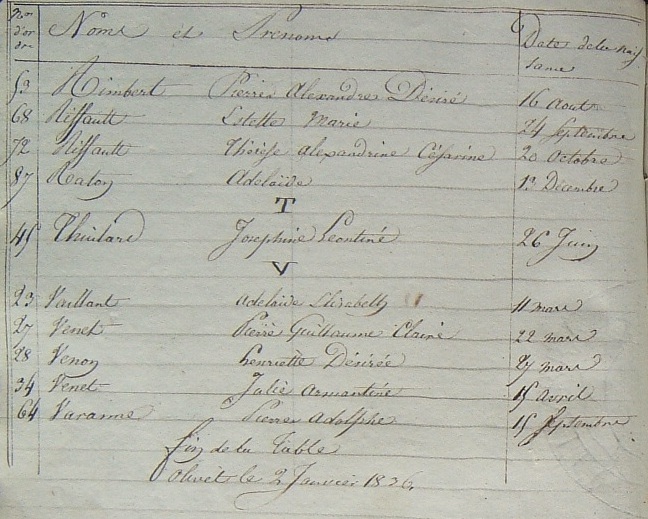 Nos d'or dre Noms et Prénoms Date de la Nais sance
53 Rimbert Pierre Alexandre Désiré 16 Aout
68 Riffault Estelle Marie 24 Septembre
72 Riffault Thérèse Alexandrine Césarine 20 Octobre
87 Raton Adelaïde 13 Décembre
T
45 Thuilard Josephine Leontine 26 Juin
V
23 Vaillant Adelaide Elizabeth 11 mars
27 Venet Pierre Guillaume Claire 22 mars
28 Venon henriette Désirée 27 mars
34 Venet Julie Armantine 15 Avril
64 Varanne Pierre Adolphe 15 Septembre
fin de la Table
Olivet le 2 Janvier 1826.